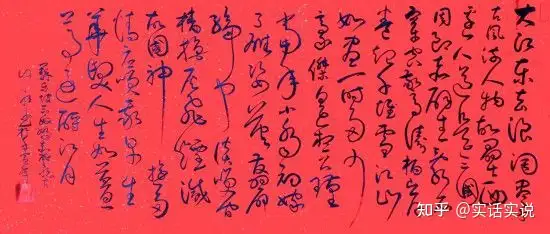 大江东去浪淘尽千
古风流人物故垒西
边人道是三国
周郎赤壁乱石
穿空惊涛拍岸
卷起千堆雪江山
如画一时多少
豪杰遥想公瑾
当年小乔初嫁
了雄姿英发羽扇
纶巾谈笑间
樯橹灰飞烟灭
故国神游多
情应笑我早生
华发人生如梦
一尊还酹江月
苏东坡念奴娇赤壁怀古
知乎 @实话实说